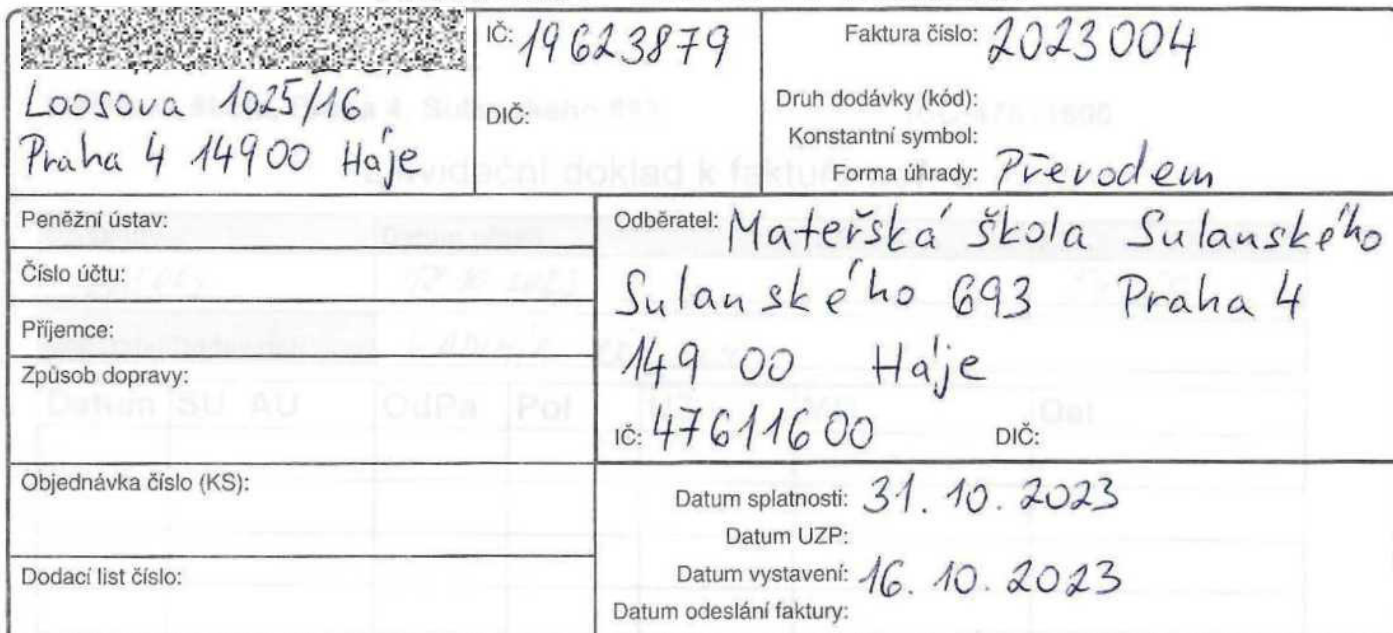 Loosova 1025/16
Praha 4 14900 Háje
IČ: 19623879
DIČ:
Faktura číslo: 2023004
Druh dodávky (kód):
Konstantní symbol:
Forma úhrady: Převodem
Peněžní ústav:
Číslo účtu:
Příjemce:
Způsob dopravy:
Odběratel: Mateřská škola Sulanského
Sulanského 693 Praha 4
149 00 Háje
IČ: 47611600 DIČ:
Objednávka číslo (KS):
Dodací list číslo:
Datum splatnosti: 31. 10. 2023
Datum UZP:
Datum vystavení: 16. 10. 2023
Datum odeslání faktury: